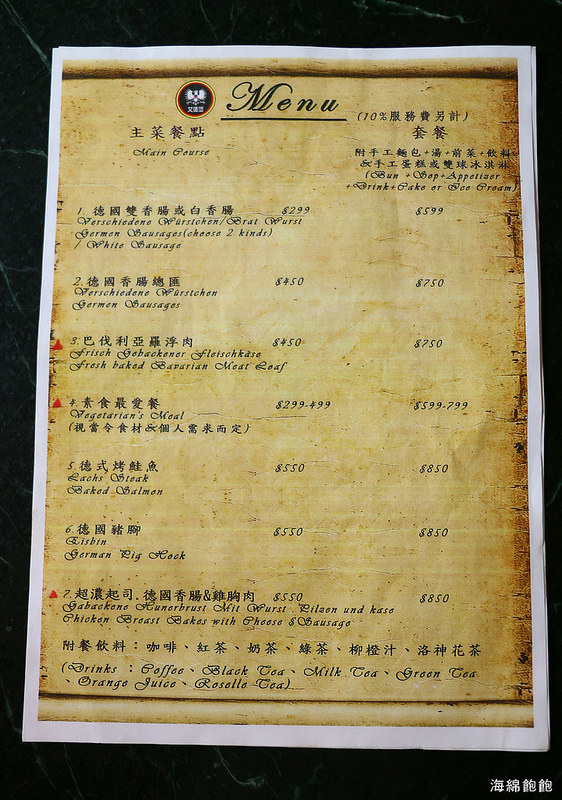 艾德堡
Menu
(10%服務費另計)
主菜餐點
套餐
Main Course
附手工麵包+湯+前菜+飲料
&手工蛋糕或雙球冰淇淋
(Bun +Sop+Appetizer
+Drink+Cake or Ice Cream)
1. 德國雙香腸或白香腸 $299 $599
Verschiedene Würstchen/Brat Wurst
Germen Sausages(cheese 2 kinds)
/ White Sausage
2.德國香腸總匯 $450 $750
Verschiedene Würstchen
Germen Sausages
3.巴伐利亞羅浮肉 $450 $750
Frisch Gebackener Fleischkäse
Fresh baked Bavarian Meat Loaf
4.素食最愛餐 $299-499 $599-799
Vegetarian's Meal
(視當令食材&個人需求而定)
5.德式烤鮭魚 $550 $850
Lachs Steak
Baked Salmon
6.德國豬腳 $550 $850
Eisbin
German Pig Hock
7.超濃起司.德國香腸&雞胸肉 $550 $850
Gabackene Hunerbrust Mit Wurst Pilzen und kase
Chicken Breast Bakes with Cheese &Sausage
附餐飲料：咖啡、紅茶、奶茶、綠茶、柳橙汁、洛神花茶
(Drinks：Coffee、Black Tea、Milk Tea、Green Tea
、Orange Juice、Roselle Tea)
海綿飽飽